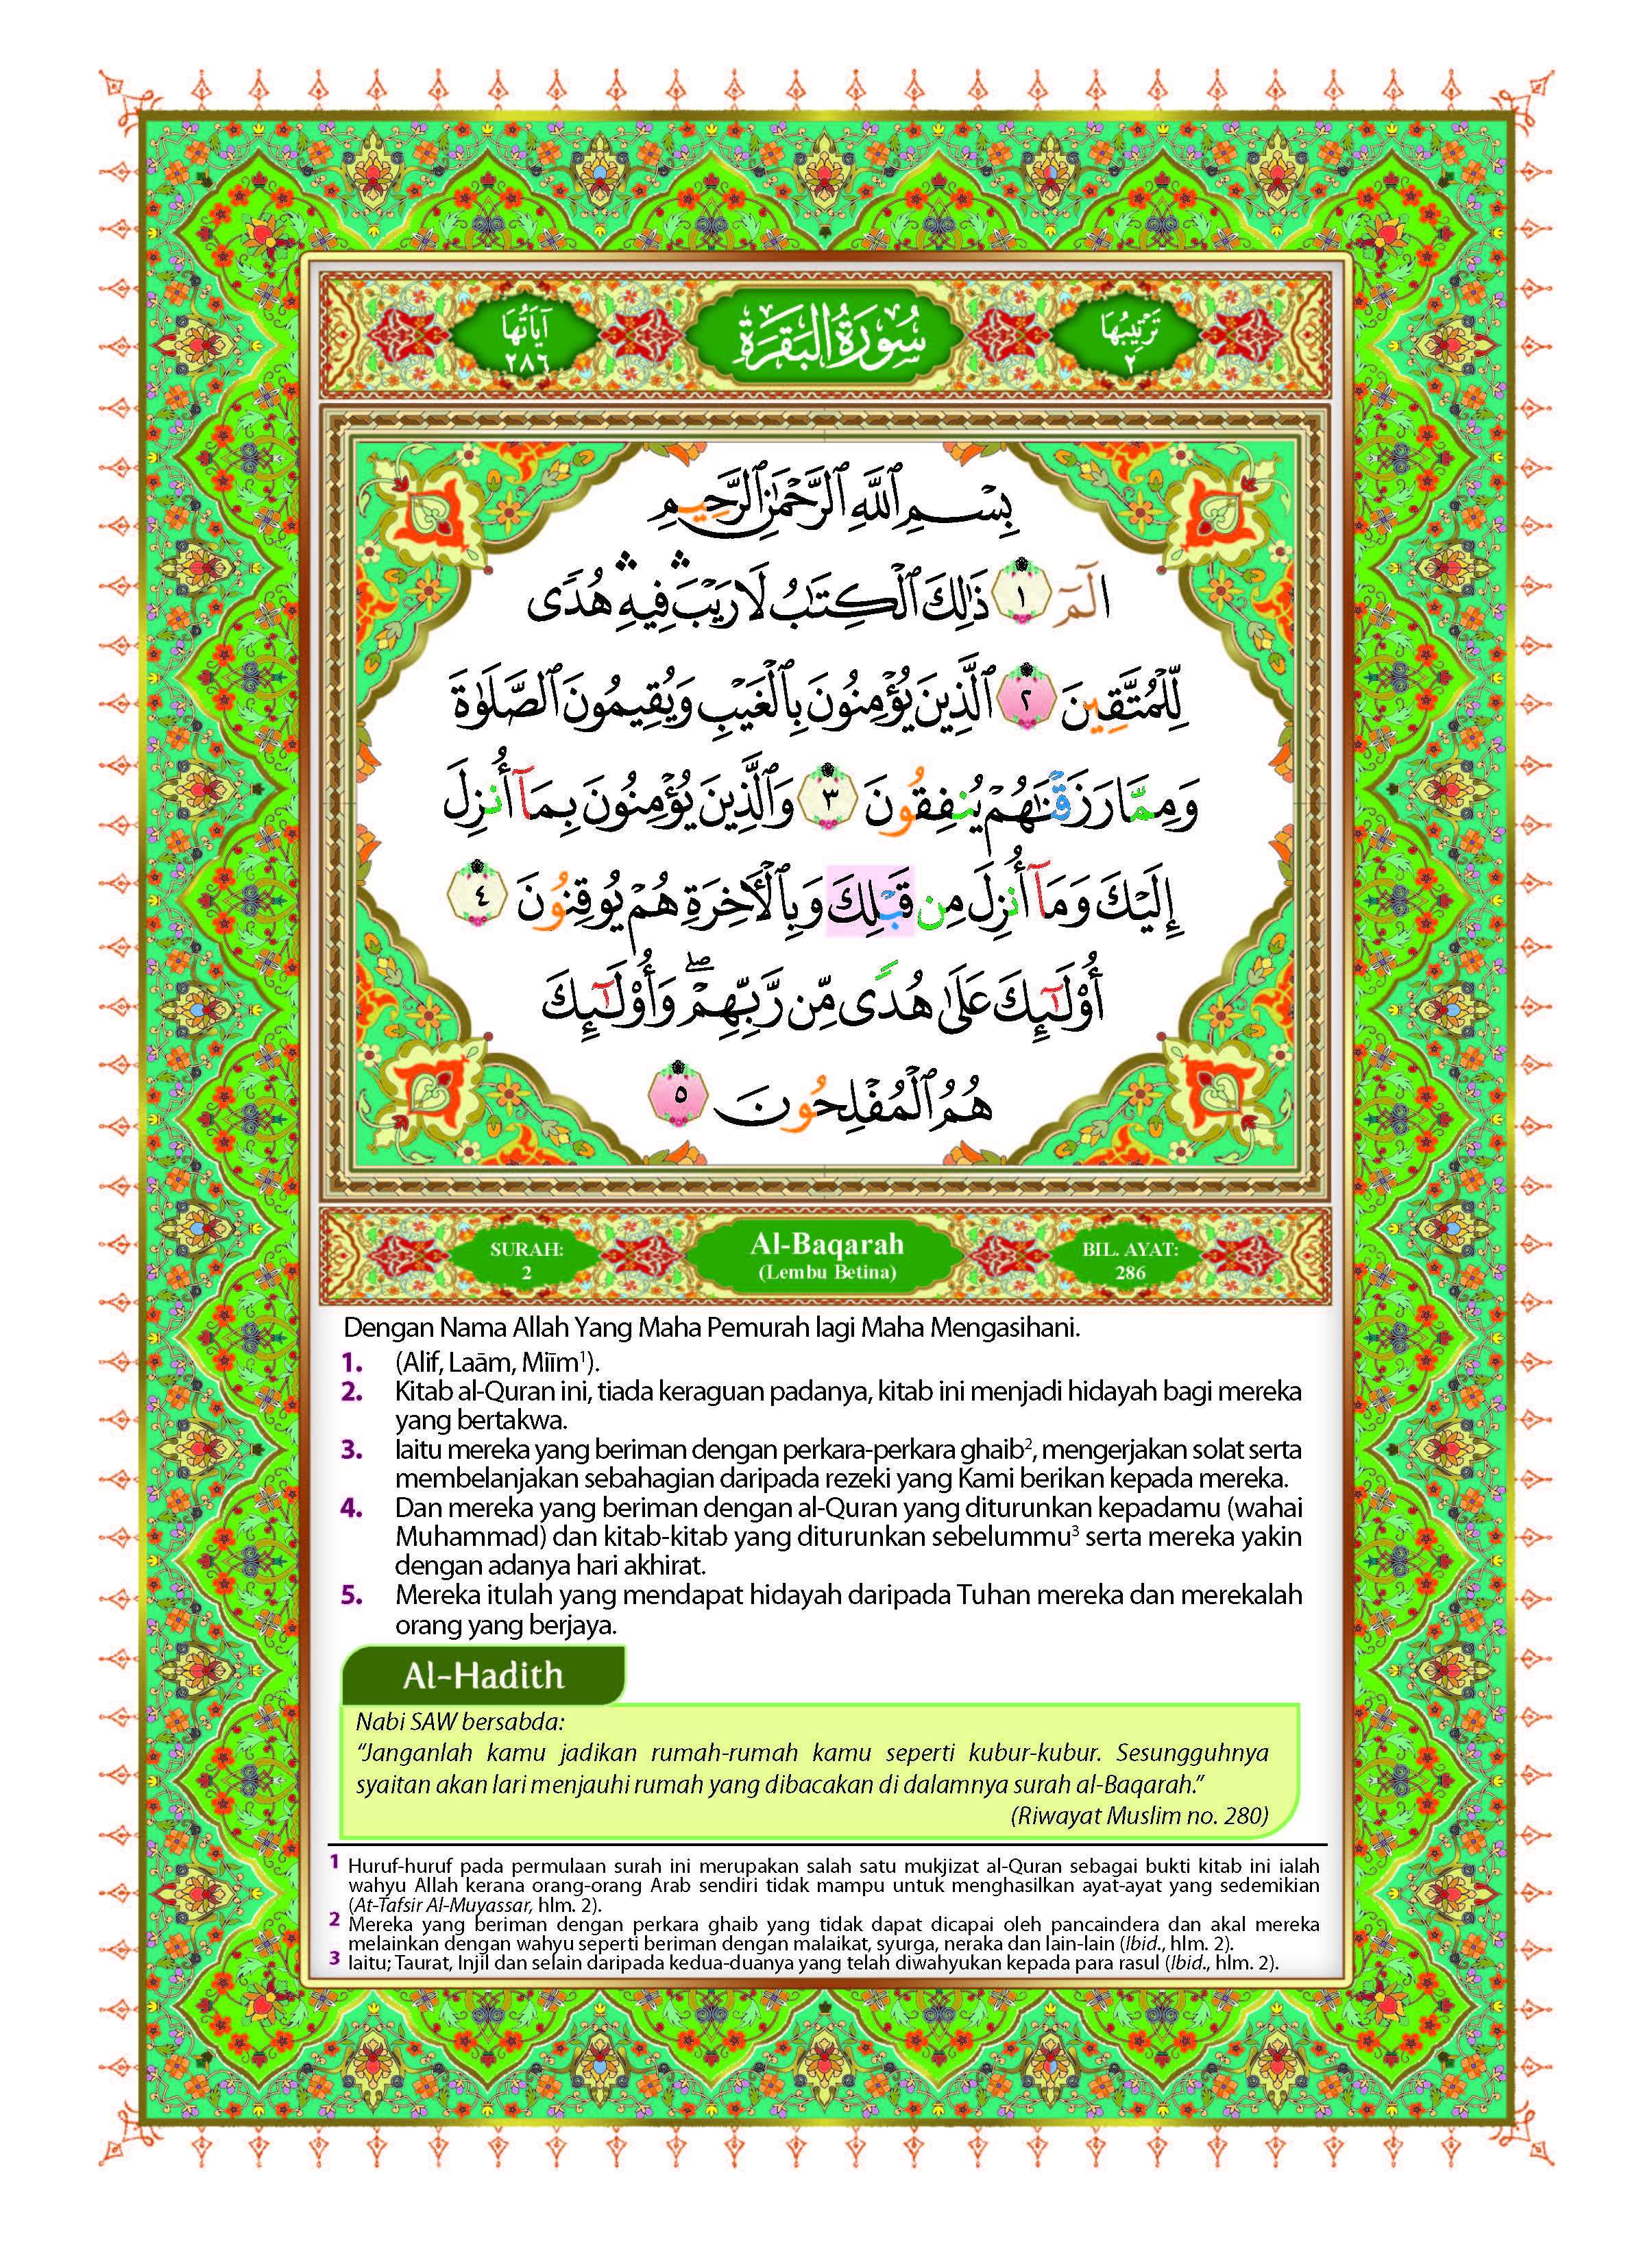 تَرْتِيبُهَا
٢
سُورَةُ الْبَقَرَةِ
آيَاتُهَا
٢٨٦
بِسْمِ ٱللَّهِ ٱلرَّحْمَٰنِ ٱلرَّحِيمِ
الٓمٓ ١ ذَٰلِكَ ٱلْكِتَٰبُ لَا رَيْبَ ۛ فِيهِ ۛ هُدًى
لِّلْمُتَّقِينَ ٢ ٱلَّذِينَ يُؤْمِنُونَ بِٱلْغَيْبِ وَيُقِيمُونَ ٱلصَّلَوٰةَ
وَمِمَّا رَزَقْنَٰهُمْ يُنفِقُونَ ٣ وَٱلَّذِينَ يُؤْمِنُونَ بِمَآ أُنزِلَ
إِلَيْكَ وَمَآ أُنزِلَ مِن قَبْلِكَ وَبِٱلْءَاخِرَةِ هُمْ يُوقِنُونَ ٤
أُو۟لَٰٓئِكَ عَلَىٰ هُدًى مِّن رَّبِّهِمْ ۖ وَأُو۟لَٰٓئِكَ
هُمُ ٱلْمُفْلِحُونَ ٥
SURAH:
2
Al-Baqarah
(Lembu Betina)
BIL. AYAT:
286
Dengan Nama Allah Yang Maha Pemurah lagi Maha Mengasihani.
1. (Alif, Laām, Miīm¹).
2. Kitab al-Quran ini, tiada keraguan padanya, kitab ini menjadi hidayah bagi mereka
yang bertakwa.
3. Iaitu mereka yang beriman dengan perkara-perkara ghaib², mengerjakan solat serta
membelanjakan sebahagian daripada rezeki yang Kami berikan kepada mereka.
4. Dan mereka yang beriman dengan al-Quran yang diturunkan kepadamu (wahai
Muhammad) dan kitab-kitab yang diturunkan sebelummu³ serta mereka yakin
dengan adanya hari akhirat.
5. Mereka itulah yang mendapat hidayah daripada Tuhan mereka dan merekalah
orang yang berjaya.
Al-Hadith
Nabi SAW bersabda:
“Janganlah kamu jadikan rumah-rumah kamu seperti kubur-kubur. Sesungguhnya
syaitan akan lari menjauhi rumah yang dibacakan di dalamnya surah al-Baqarah.”
(Riwayat Muslim no. 280)
1 Huruf-huruf pada permulaan surah ini merupakan salah satu mukjizat al-Quran sebagai bukti kitab ini ialah
wahyu Allah kerana orang-orang Arab sendiri tidak mampu untuk menghasilkan ayat-ayat yang sedemikian
(At-Tafsir Al-Muyassar, hlm. 2).
2 Mereka yang beriman dengan perkara ghaib yang tidak dapat dicapai oleh pancaindera dan akal mereka
melainkan dengan wahyu seperti beriman dengan malaikat, syurga, neraka dan lain-lain (Ibid., hlm. 2).
3 Iaitu; Taurat, Injil dan selain daripada kedua-duanya yang telah diwahyukan kepada para rasul (Ibid., hlm. 2).